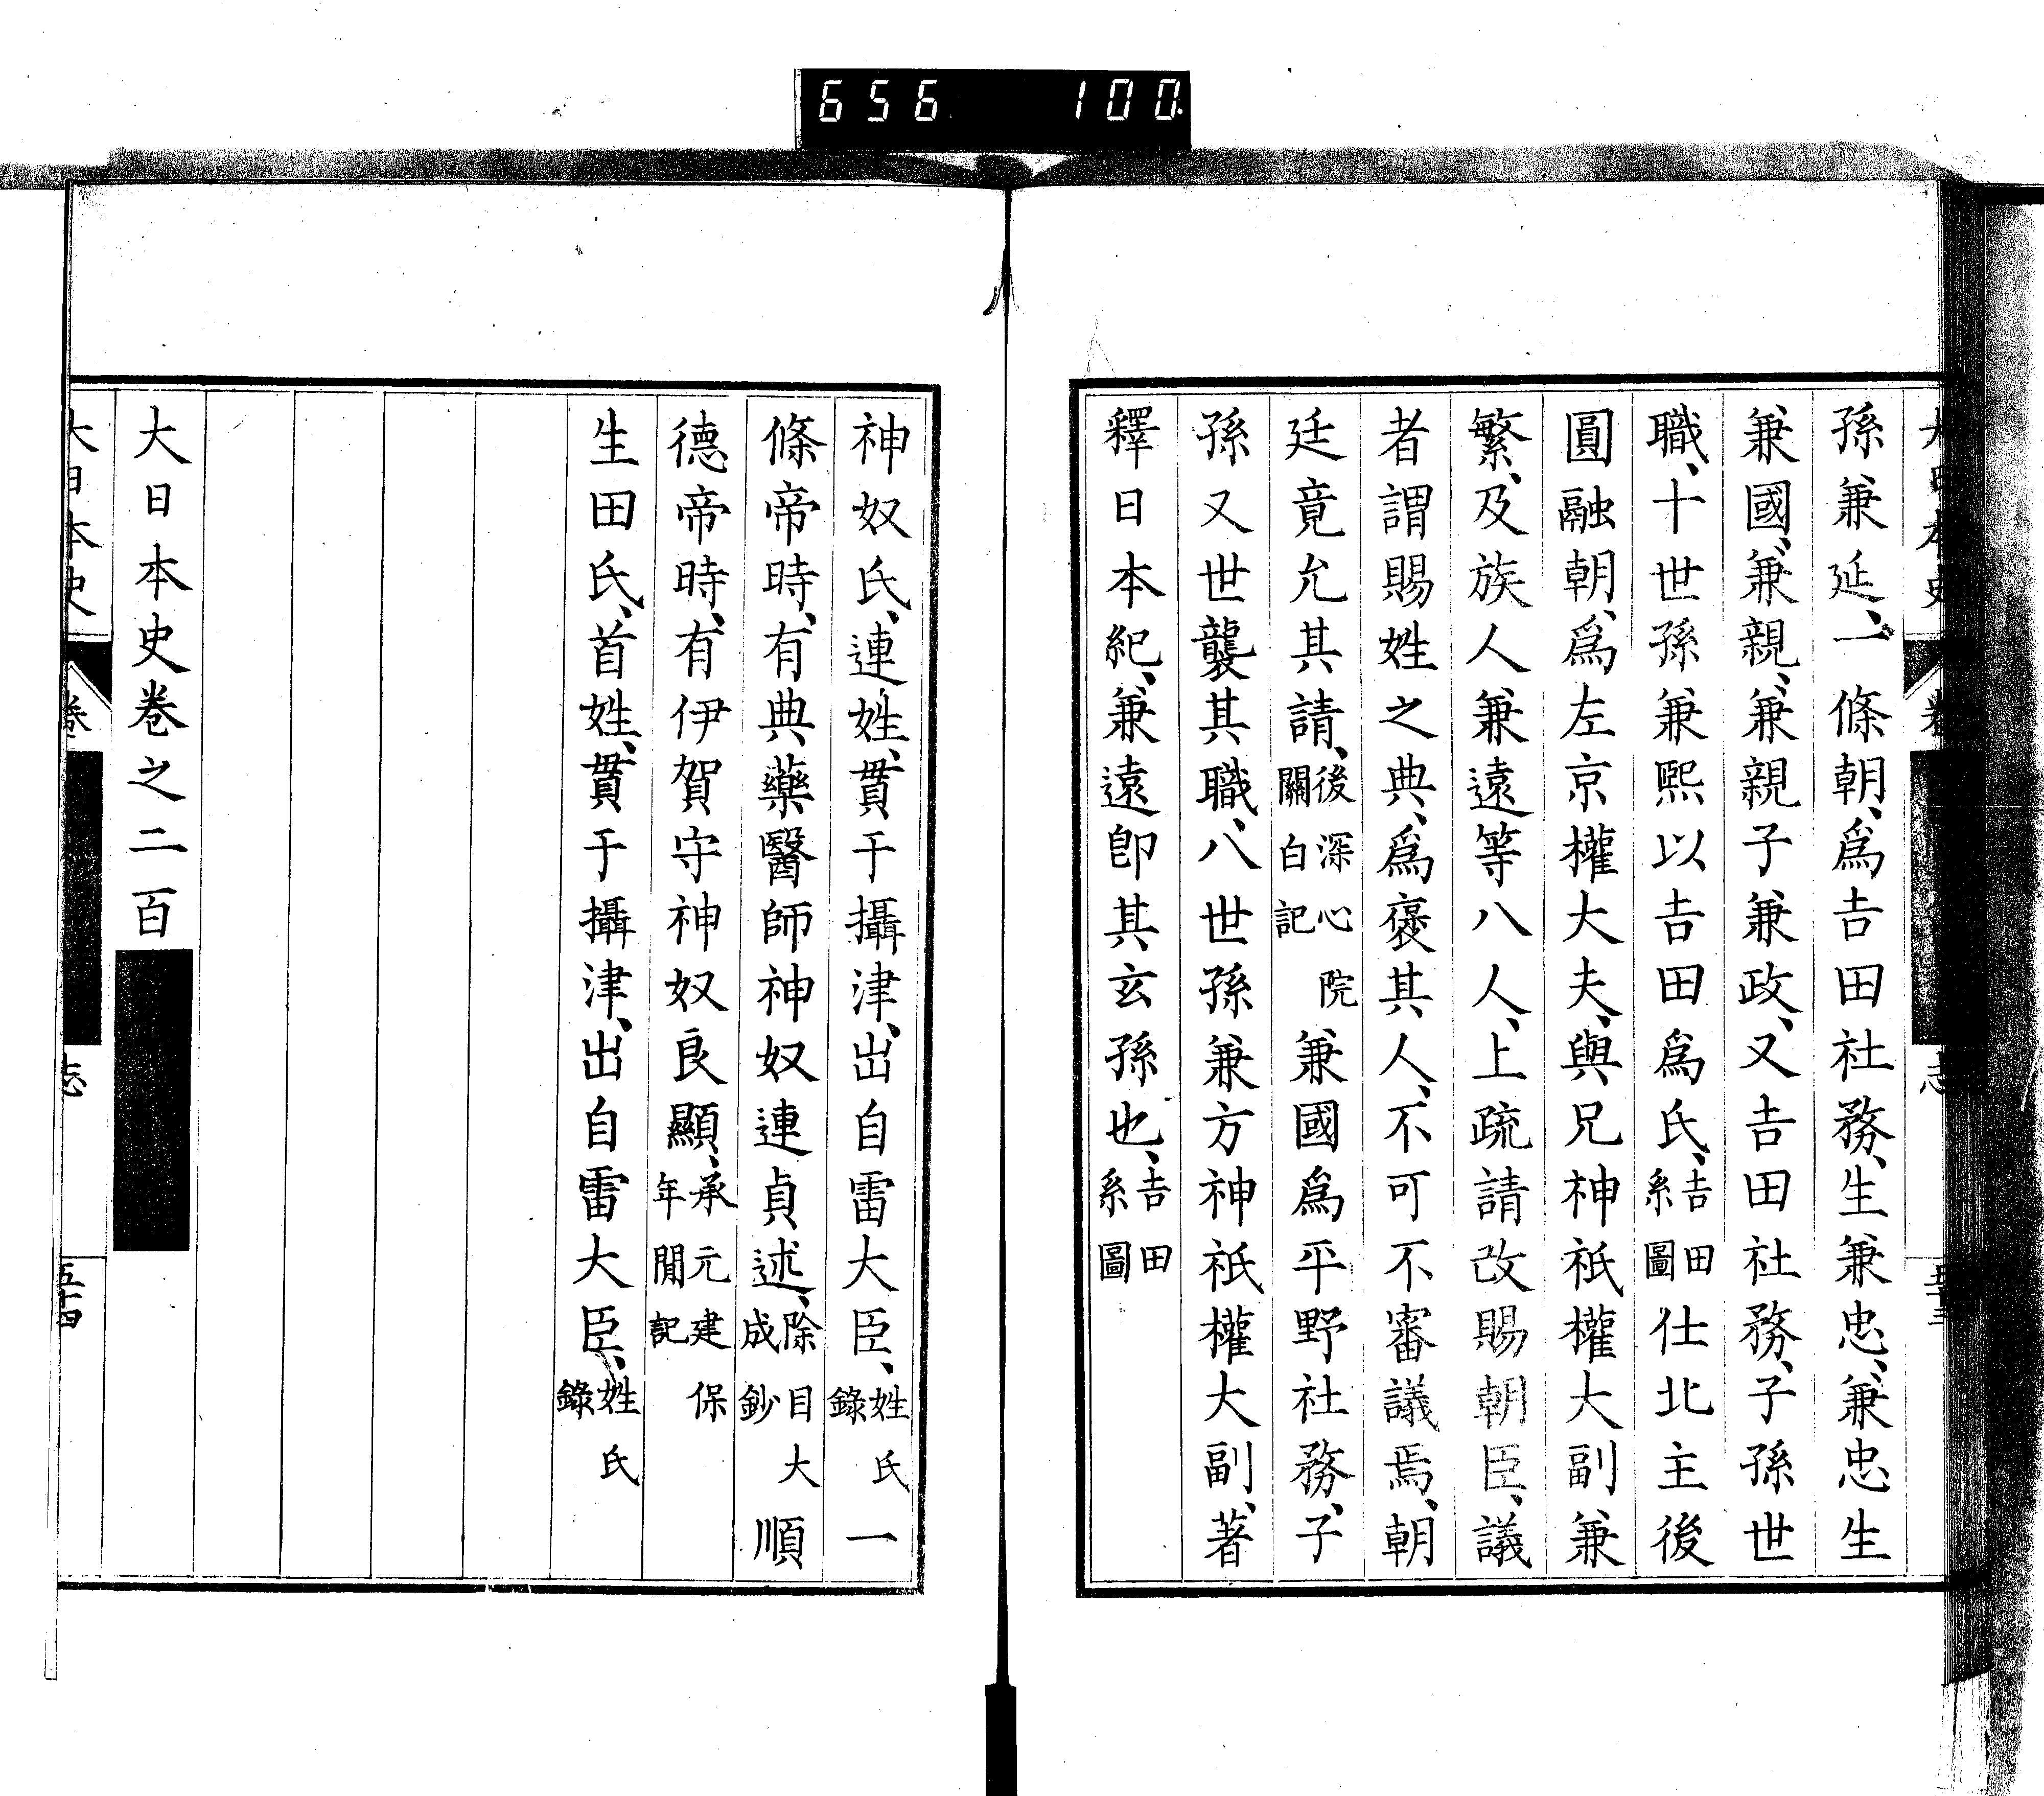 656 100.
孫兼延、一條朝、爲吉田社務、生兼忠、兼忠生
兼國、兼親、兼親子兼政、又吉田社務、子孫世
職、十世孫兼熙以吉田爲氏、吉田系圖仕北主後
圓融朝、爲左京權大夫、與兄神祇權大副兼
繁、及族人兼遠等八人、上疏請改賜朝臣、議
者謂賜姓之典、爲褒其人、不可不審議焉、朝
廷竟允其請、後深心院關白記兼國爲平野社務、子
孫又世襲其職、八世孫兼方神祇權大副、著
釋日本紀、兼遠卽其玄孫也、吉田系圖
神奴氏、連姓、貫于攝津、出自雷大臣、姓氏錄一
條帝時、有典藥醫師神奴連貞述、除目大成鈔順
德帝時、有伊賀守神奴良顯、承元建保年閒記
生田氏、首姓、貫于攝津、出自雷大臣、姓氏錄
大日本史卷之二百
大日本史 卷 志 五十四